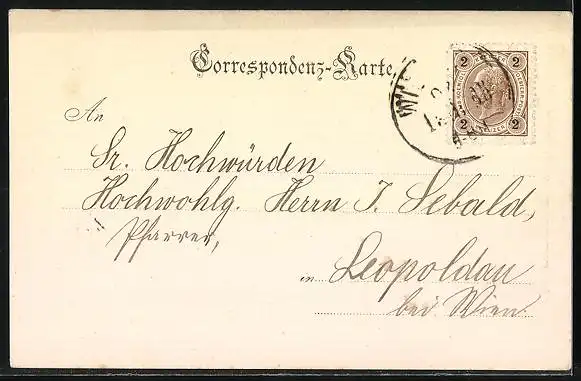 Correspondenz-Karte
2 2
2 2
An
Sr. Hochwürden
Hochwohlg. Herrn J. Sebald,
Pfarrer,
in Leopoldau
bei Wien